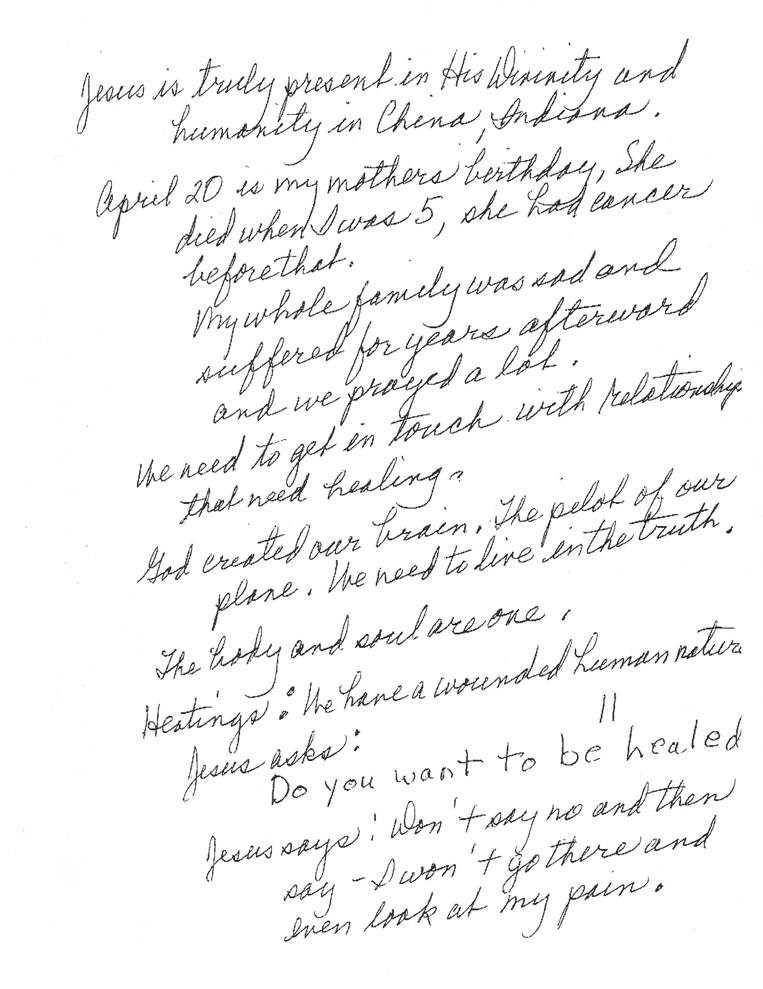 Jesus is truly present in His Divinity and
humanity in China, Indiana.
April 20 is my mothers birthday, She
died when I was 5, she had cancer
before that.
My whole family was sad and
suffered for years afterward
and we prayed a lot.
We need to get in touch with relationship
that need healing.
God created our brain. The pilot of our
plane. We need to live in the truth.
The body and soul are one.
Heatings: We have a wounded human nature
Jesus asks: "
Do you want to be healed
Jesus says: Don't say no and then
say - I won't go there and
even look at my pain.